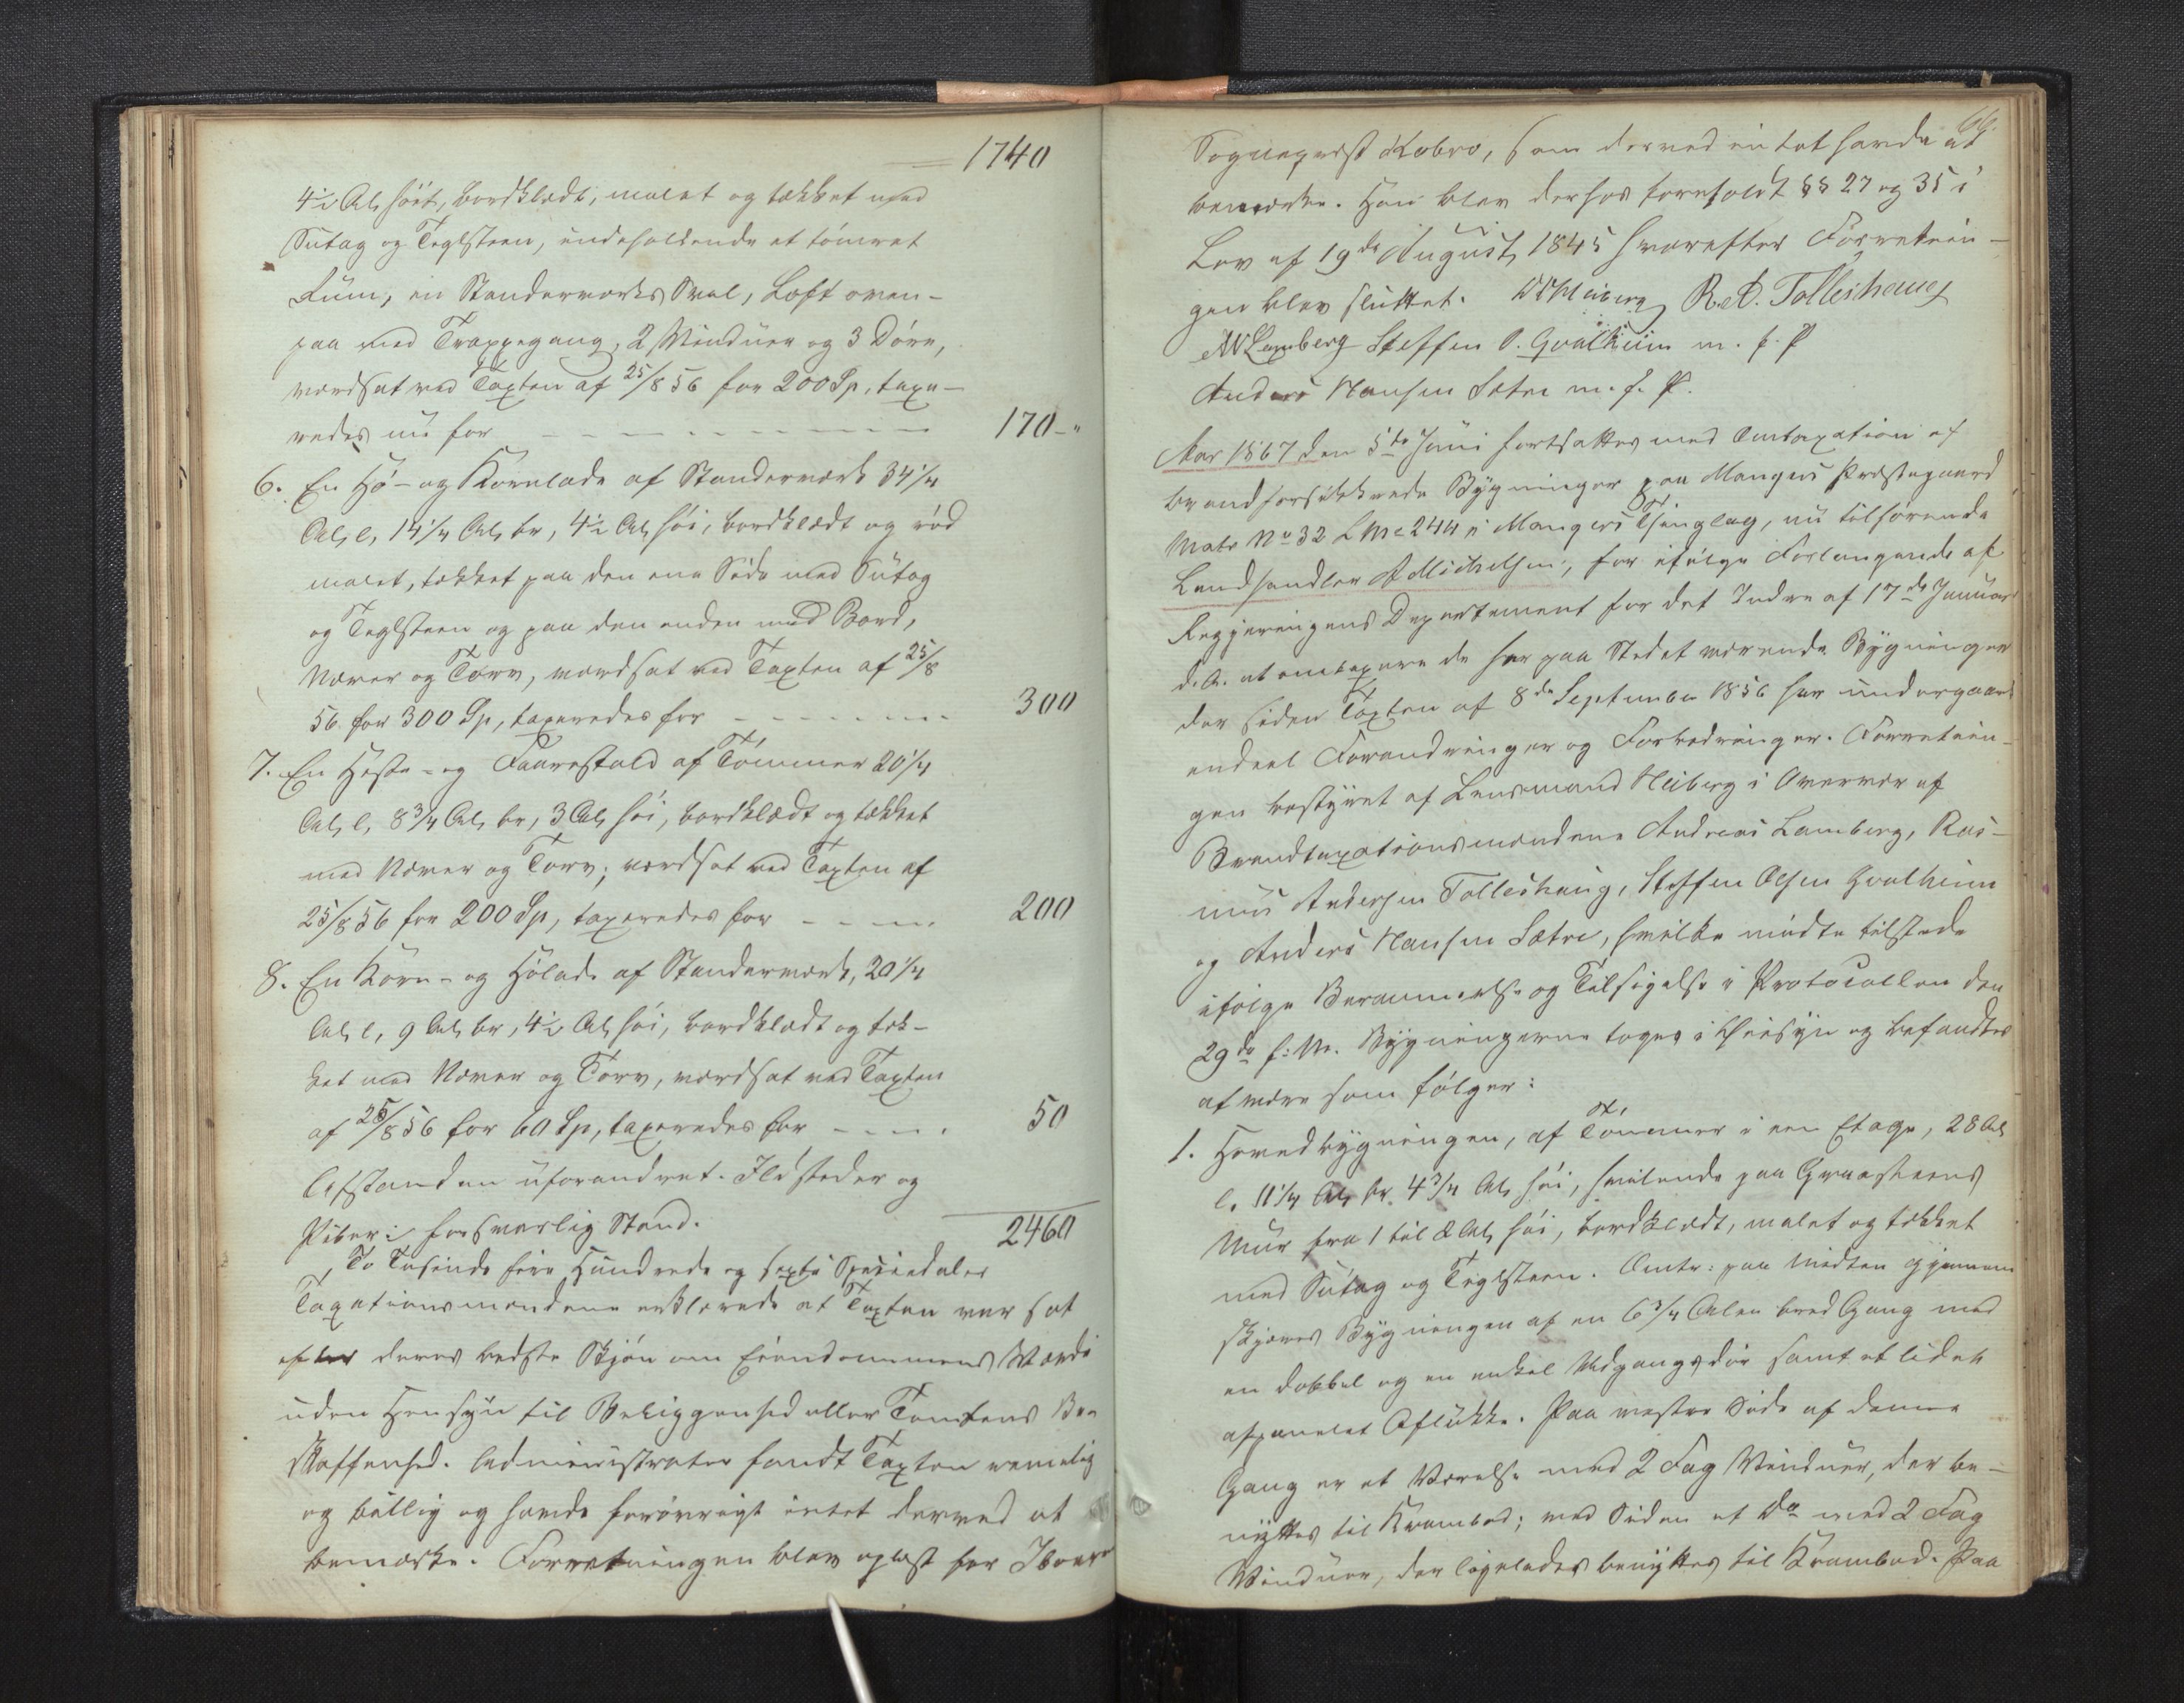 1740
4½ Al. höit, bordklædt, malet og tækket med
Sutag og Teglsteen, indeholdende et tömret
Rum, en Standerværks Sval, Loft oven-
paa med Trappegang, 2 Vinduer og 3 Döre,
værdsat ved Taxten af 25/8 56 for 200 Sp, taxe-
redes nu for 170 - "
6. En Hö- og Kornlade af Standerværk 34 1/4
Al, l, 14 1/4 Al, br, 4½ Al, höi, bordklædt og röd
malet, tækket paa den ene Side med Sutag
og Teglsteen og paa den anden med Bord,
Næver og Törv, værdsat ved Taxten af 25/8
56 for 300 Sp, taxeredes for 300
7. En Heste- og Faarestald af Tömmer 20 1/4
Al, l, 8 3/4 Al, br, 3 Al, höi, bordklædt og tækket
med Næver og Törv; værdsat ved Taxten af
25/8 56 for 200 Sp, taxeredes for 200
8. En Korn- og Hölade af Standerværk, 20 1/4
Al, l, 9 Al, br, 4½ Al, höi, bordklædt og tæk-
ket med Næver og Törv, værdsat ved Taxten
af 25/8 56 for 60 Sp, taxeredes for 50
Afstanden uforandret. Ildsteder og
Piber i forsvarlig Stand. 2460
To Tusinde fire Hundrede og sexti Speciedaler
Taxationsmændene erklærede at Taxten var sat
efter deres bedste Skjön om Eiendommens Værdi
uden Hensyn til Beliggenhed eller Tomtens Be-
skaffenhed. Administrator fandt Taxten rimelig
og billig og havde forövrigt intet derved at
bemærke. Forretningen blev oplæst for Iboeren
66.
Sogneprest Kobro, som derved intet havde at
bemærke. Han blev derhos foreholdt §§ 27 og 35 i
Lov af 19de August 1845 hvorefter Forretnin-
gen blev sluttet. Heiberg R. A. Tolleshaug
A Lamberg Steffen O. Qvalheim m. f. P
Anders Hansen Sætre m. f. P.
Aar 1867 den 5te Juni fortsattes med Omtaxation af
brandforsikkrede Bygninger paa Mangers Prestegaard
Matr No 32 L No 244 i Mangers Thinglag, nu tilhörende
Landhandler A Michelsen, for ifölge Forlangende af
Regjeringens Departement for det Indre af 17de Januar
d. A. at omtaxere de her paa Stedet værende Bygninger
der siden Taxten af 8de September 1856 har undergaaet
endeel Forandringer og Forbedringer. Forretnin-
gen bestyret af Lensmand Heiberg i Overvær af
Brandtaxationsmændene Andreas Lamberg, Ras-
mus Andersen Tolleshaug, Steffen Olsen Qvalheim
og Anders Hansen Sætre, hvilke mödte tilstede
ifölge Berammelse og Tilsigelse i Protocollen den
29de f: M. Bygningerne toges i Öiesyn og befandtes
at være som fölger:
1. Hovedbygningen, af Tömmer i een Etage, 28 Al,
l. 11 1/4 Al, br 4 3/4 Al, höi, hvilende paa Graasteens
Muur fra 1 til 2 Al, höi, bordklædt, malet og tækket
med Sutag og Teglsteen. Omtr: paa midten gjennem
skjæres Bygningen af en 6 3/4 Alen bred Gang med
en dobbel og en enkel Udgangsdör samt et lidet
afpanelet Aflukke. Paa vestre Side af denne
Gang er et Værelse med 2 Fag Vinduer, der be-
nyttes til Krambod; ved Siden et Do med 2 Fag
Vinduer, der ligeledes benyttes til Krambod. Paa